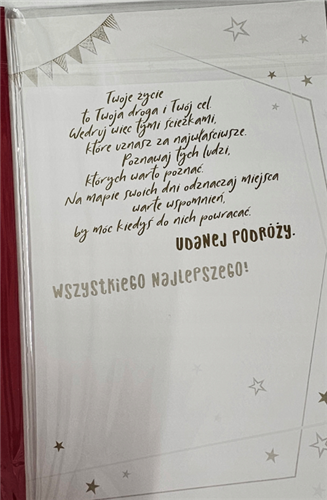 Twoje życie
to Twoja droga i Twój cel.
Wędruj więc tymi ścieżkami,
które uznasz za najwłaściwsze.
Poznawaj tych ludzi,
których warto poznać.
Na mapie swoich dni odznaczaj miejsca
warte wspomnień,
by móc kiedyś do nich powracać.
UDANEJ PODRÓŻY.
WSZYSTKIEGO NAJLEPSZEGO!